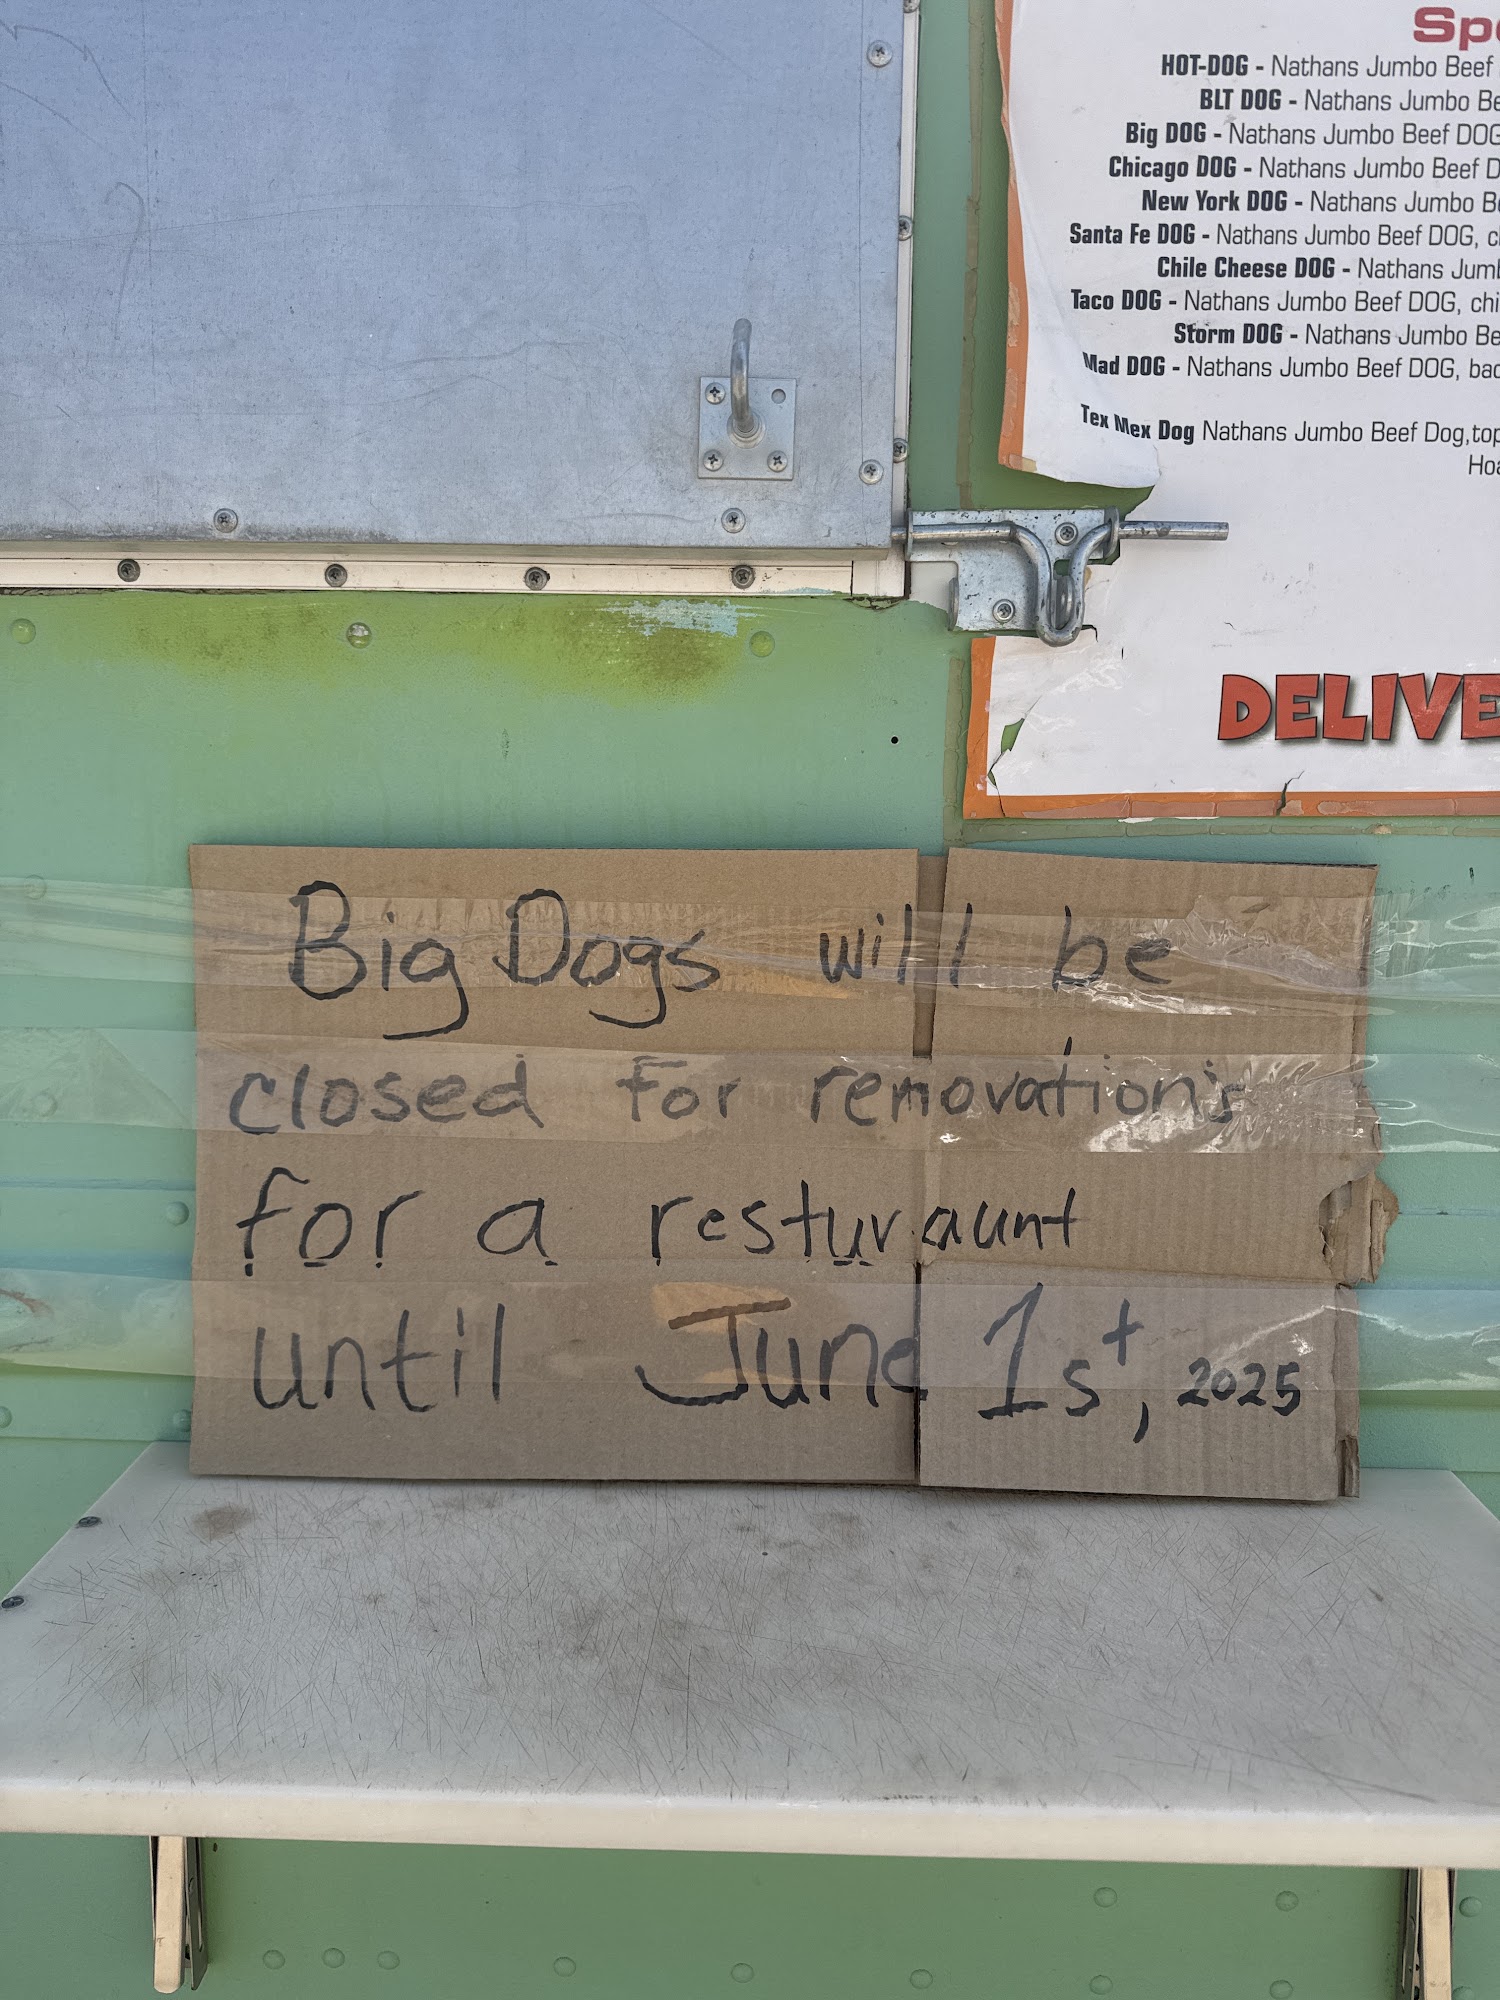 HOT-DOG - Nathans Jumbo Beef
BLT DOG - Nathans Jumbo
Big DOG - Nathans Jumbo Beef DOG
Chicago DOG - Nathans Jumbo Beef
New York DOG - Nathans Jumbo
Santa Fe DOG - Nathans Jumbo Beef DOG,
Chile Cheese DOG - Nathans
Taco DOG - Nathans Jumbo Beef DOG,
Storm DOG - Nathans Jumbo
Mad DOG - Nathans Jumbo Beef DOG,
Tex Mex Dog Nathans Jumbo Beef Dog,
Big Dogs will be
closed for renovation's
for a resturaunt
until June 1st, 2025